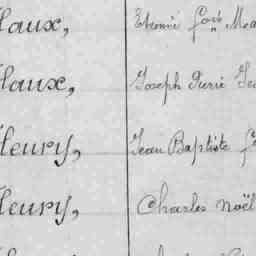 laux, Etienne fçois
laux, Joseph Pierre
leury, Jean Baptiste
leury, Charles noël